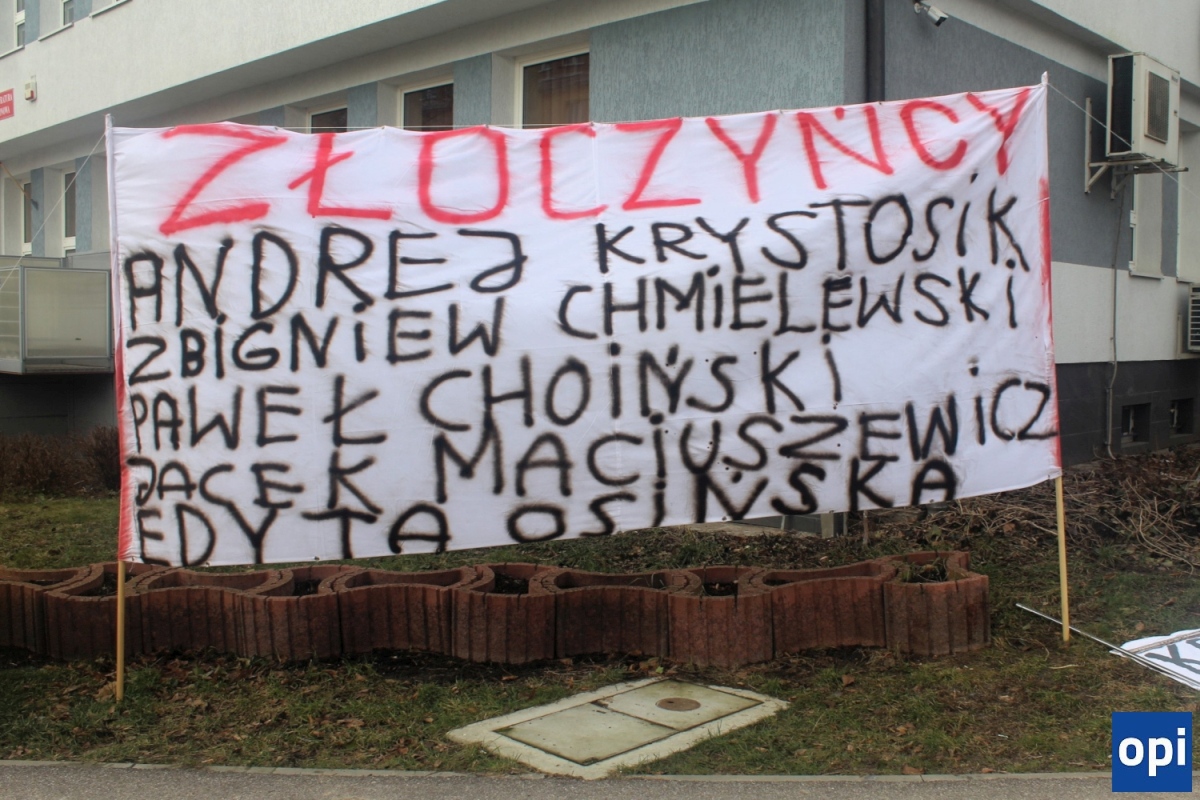 ZŁOCZYŃCY
ANDREJ KRYSTOSIK
ZBIGNIEW CHMIELEWSKI
PAWEŁ CHOIŃSKI
JACEK MACIUSZEWICZ
EDYTA OSIŃSKA
opi